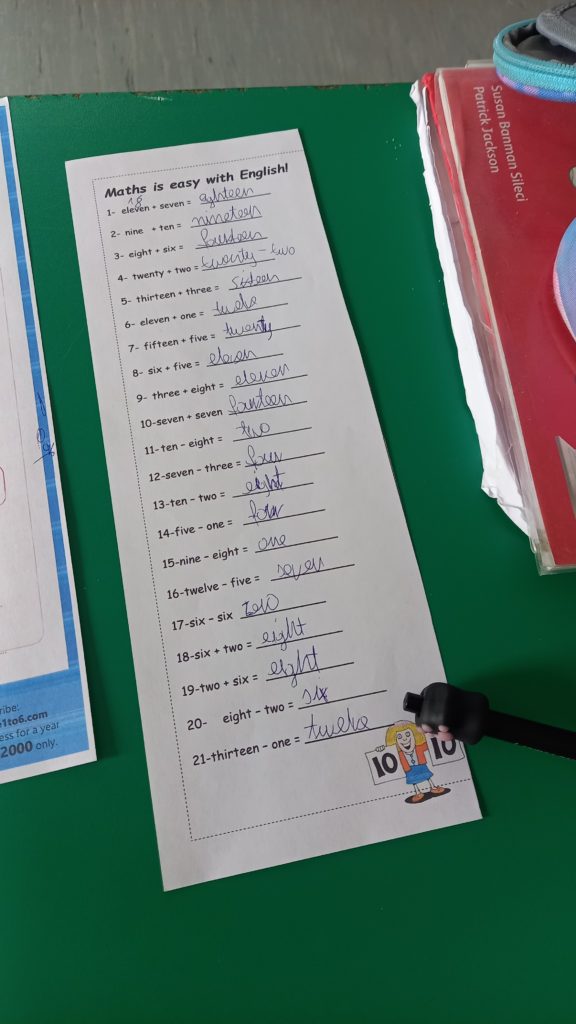 Maths is easy with English!
18
1- eleven + seven = eighteen
2- nine + ten = nineteen
3- eight + six = fourteen
4- twenty + two = twenty-two
5- thirteen + three = sixteen
6- eleven + one = twelve
7- fifteen + five = twenty
8- six + five = eleven
9- three + eight = eleven
10-seven + seven fourteen
11-ten - eight = two
12-seven - three = four
13-ten - two = eight
14-five - one = four
15-nine - eight = one
16-twelve - five = seven
17-six - six zero
18-six + two = eight
19-two + six = eight
20- eight - two = six
21-thirteen - one = twelve
10 10
Susan Banman Sileci
Patrick Jackson
ribe:
1to6.com
ess for a year
2000 only.